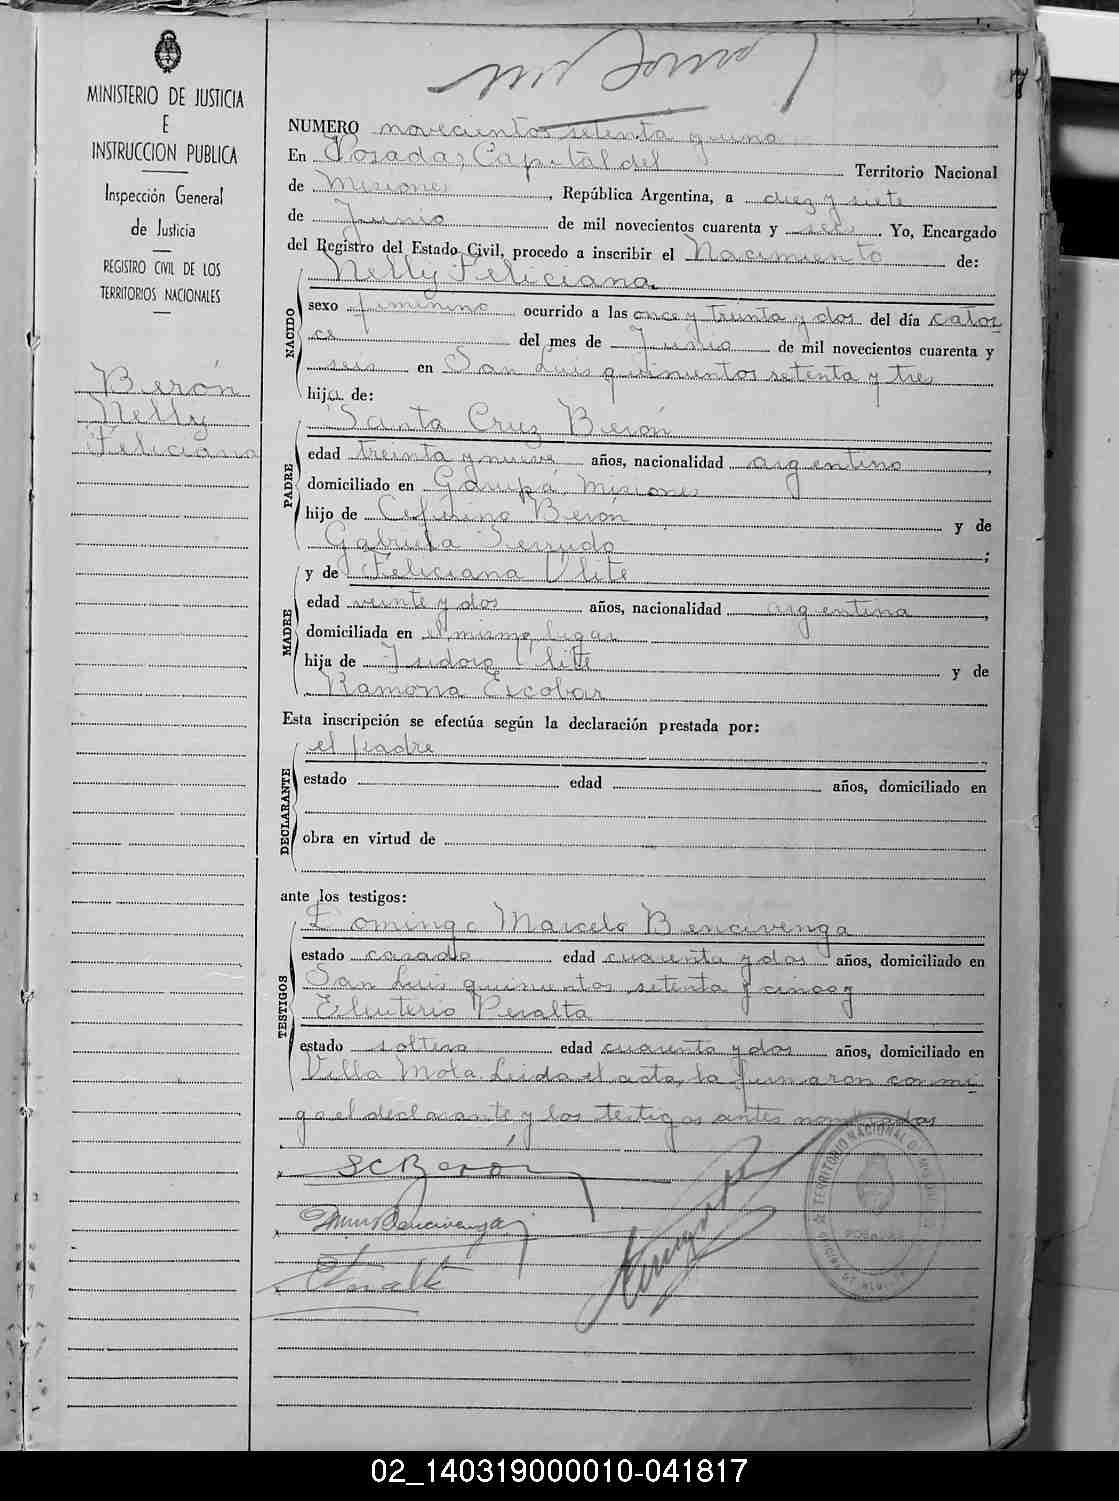 7
MINISTERIO DE JUSTICIA
E
INSTRUCCION PUBLICA
Inspección General
de Justicia
REGISTRO CIVIL DE LOS
TERRITORIOS NACIONALES
Berón
Nelly
Feliciana
NUMERO novecientos setenta y uno
En Posadas, Capital del Territorio Nacional
de Misiones, República Argentina, a diez y siete
de Junio de mil novecientos cuarenta y seis. Yo, Encargado
del Registro del Estado Civil, procedo a inscribir el Nacimiento de:
NACIDO
Nelly Feliciana
sexo femenino ocurrido a las once y treinta y dos del día cator
ce del mes de Junio de mil novecientos cuarenta y
seis en San Luis quinientos setenta y tres
hija de:
PADRE
Santa Cruz Berón
edad treinta y nueve años, nacionalidad argentino,
domiciliado en Garupá, Misiones
hijo de Ceferino Berón y de
Gabriela ;
MADRE
y de Feliciana
edad veinte y dos años, nacionalidad argentina,
domiciliada en el mismo lugar
hija de Isidoro y de
Ramona Escobar
Esta inscripción se efectúa según la declaración prestada por:
DECLARANTE
el padre;
estado edad años, domiciliado en
obra en virtud de
ante los testigos:
TESTIGOS
Domingo Marcelo Bencivenga
estado casado edad cuarenta y dos años, domiciliado en
San Luis quinientos setenta y cinco y
Eleuterio Peralta
estado soltero edad cuarenta y dos años, domiciliado en
Villa Mola. Leida el acta, la firmaron con mi
go el declarante y los testigos antes nombrados
S C Berón
Bencivenga
TERRITORIO NACIONAL DE MISIONES
POSADAS
02_140319000010-041817